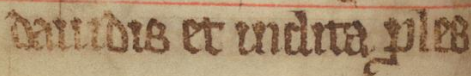 dauidis et inclita ꝓles